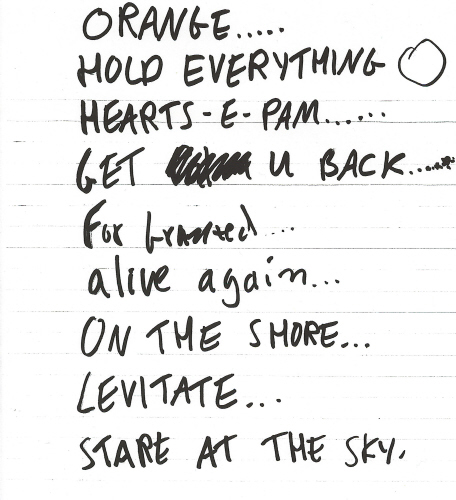 ORANGE.....
HOLD EVERYTHING
HEARTS-E-PAM......
GET U BACK......
For Granted...
alive again...
ON THE SHORE...
LEVITATE...
STARE AT THE SKY.